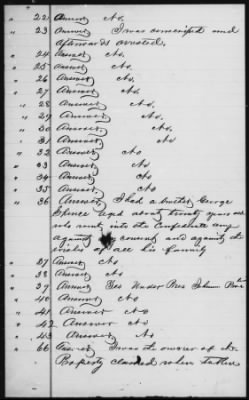 " 22 Answer No.
" 23 Answer I was conscripted and
afterwards arrested.
" 24 Answer No.
" 25 Answer No.
" 26 Answer No.
" 27 Answer No.
" 28 Answer No.
" 29 Answer No.
" 30 Answer No.
" 31 Answer No
" 32 Answer No
" 33 Answer No.
" 34 Answer No
" 35 Answer No
" 36 Answer I had a brother George
aged about twenty years
who went into the Confederate army
against my consent and against the
wishes of all his family
" 37 Answer No
" 38 Answer No
" 39 Answer Yes Under Pres Johnson
" 40 Answer No
" 41 Answer No
" 42 Answer No
" 43 Answer No
" 66 Answer I was the owner of the
Property claimed when taken